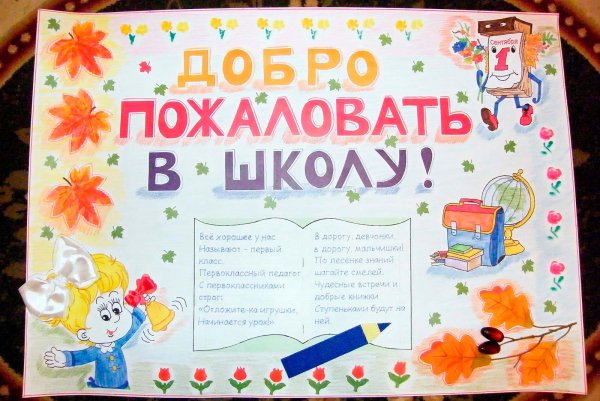 ДОБРО
ПОЖАЛОВАТЬ
В ШКОЛУ!
Сентябрь
1
Всё хорошее у нас
Называют - первый
класс.
Первоклассный педагог
С первоклассниками
строг:
«Отложите-ка игрушки,
Начинается урок!»
В дорогу, девчонки,
в дорогу, мальчишки!
По лесенке знаний
шагайте смелей.
Чудесные встречи и
добрые книжки
Ступеньками будут на
ней.